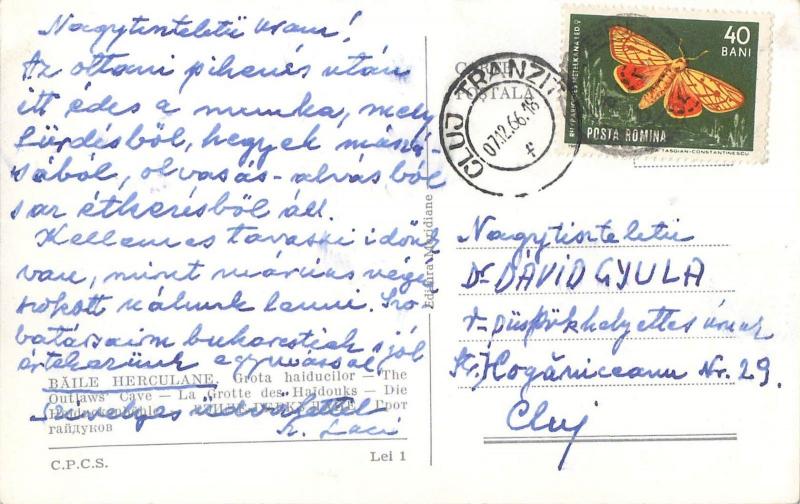 Nagytiszteletű Uram!
Az ottani pihenés után
itt édes a munka, mely
fürdésből, hegyek mászá-
sából, olvasás-alvásból
s az étkezésből áll.
Kellemes tavaszi idönk
van, mint március végén
szokott nálunk lenni. Szo-
batársaim bukarestiek s jól
értekezünk egymással,
Szívélyes üdvözlettel
Laci
BĂILE HERCULANE. Grota haiducilor — The
Outlaws' Cave — La Grotte des Haïdouks — Die
грот
гайдуков
C.P.C.S. Lei 1
Editura Meridiane
CLUJ TRANZIT
07.12.66.18
40
BANI
POSTA ROMINA
TASGIAN-CONSTANTINESCU
Nagytiszteletű
Dr DÁVID GYULA
püspökhelyettes úrnak
Str. Kogălniceanu Nr. 29.
Cluj